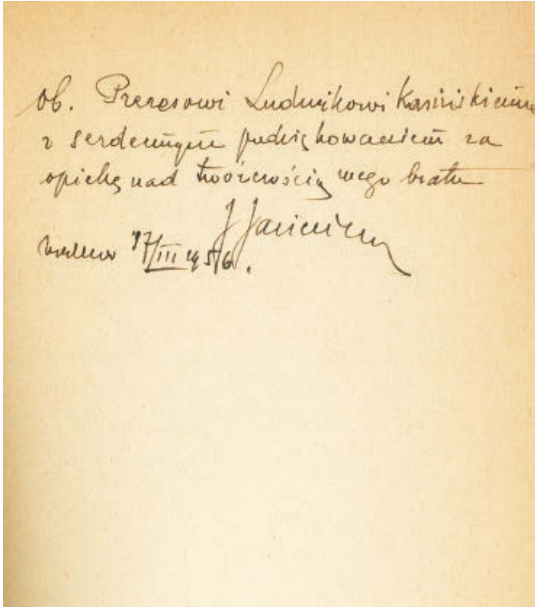 Ob. Prezesowi Ludwikowi Kasińskiemu
z serdecznym podziękowaniem za
opiekę nad twórczością mego brata
17/III 1956.